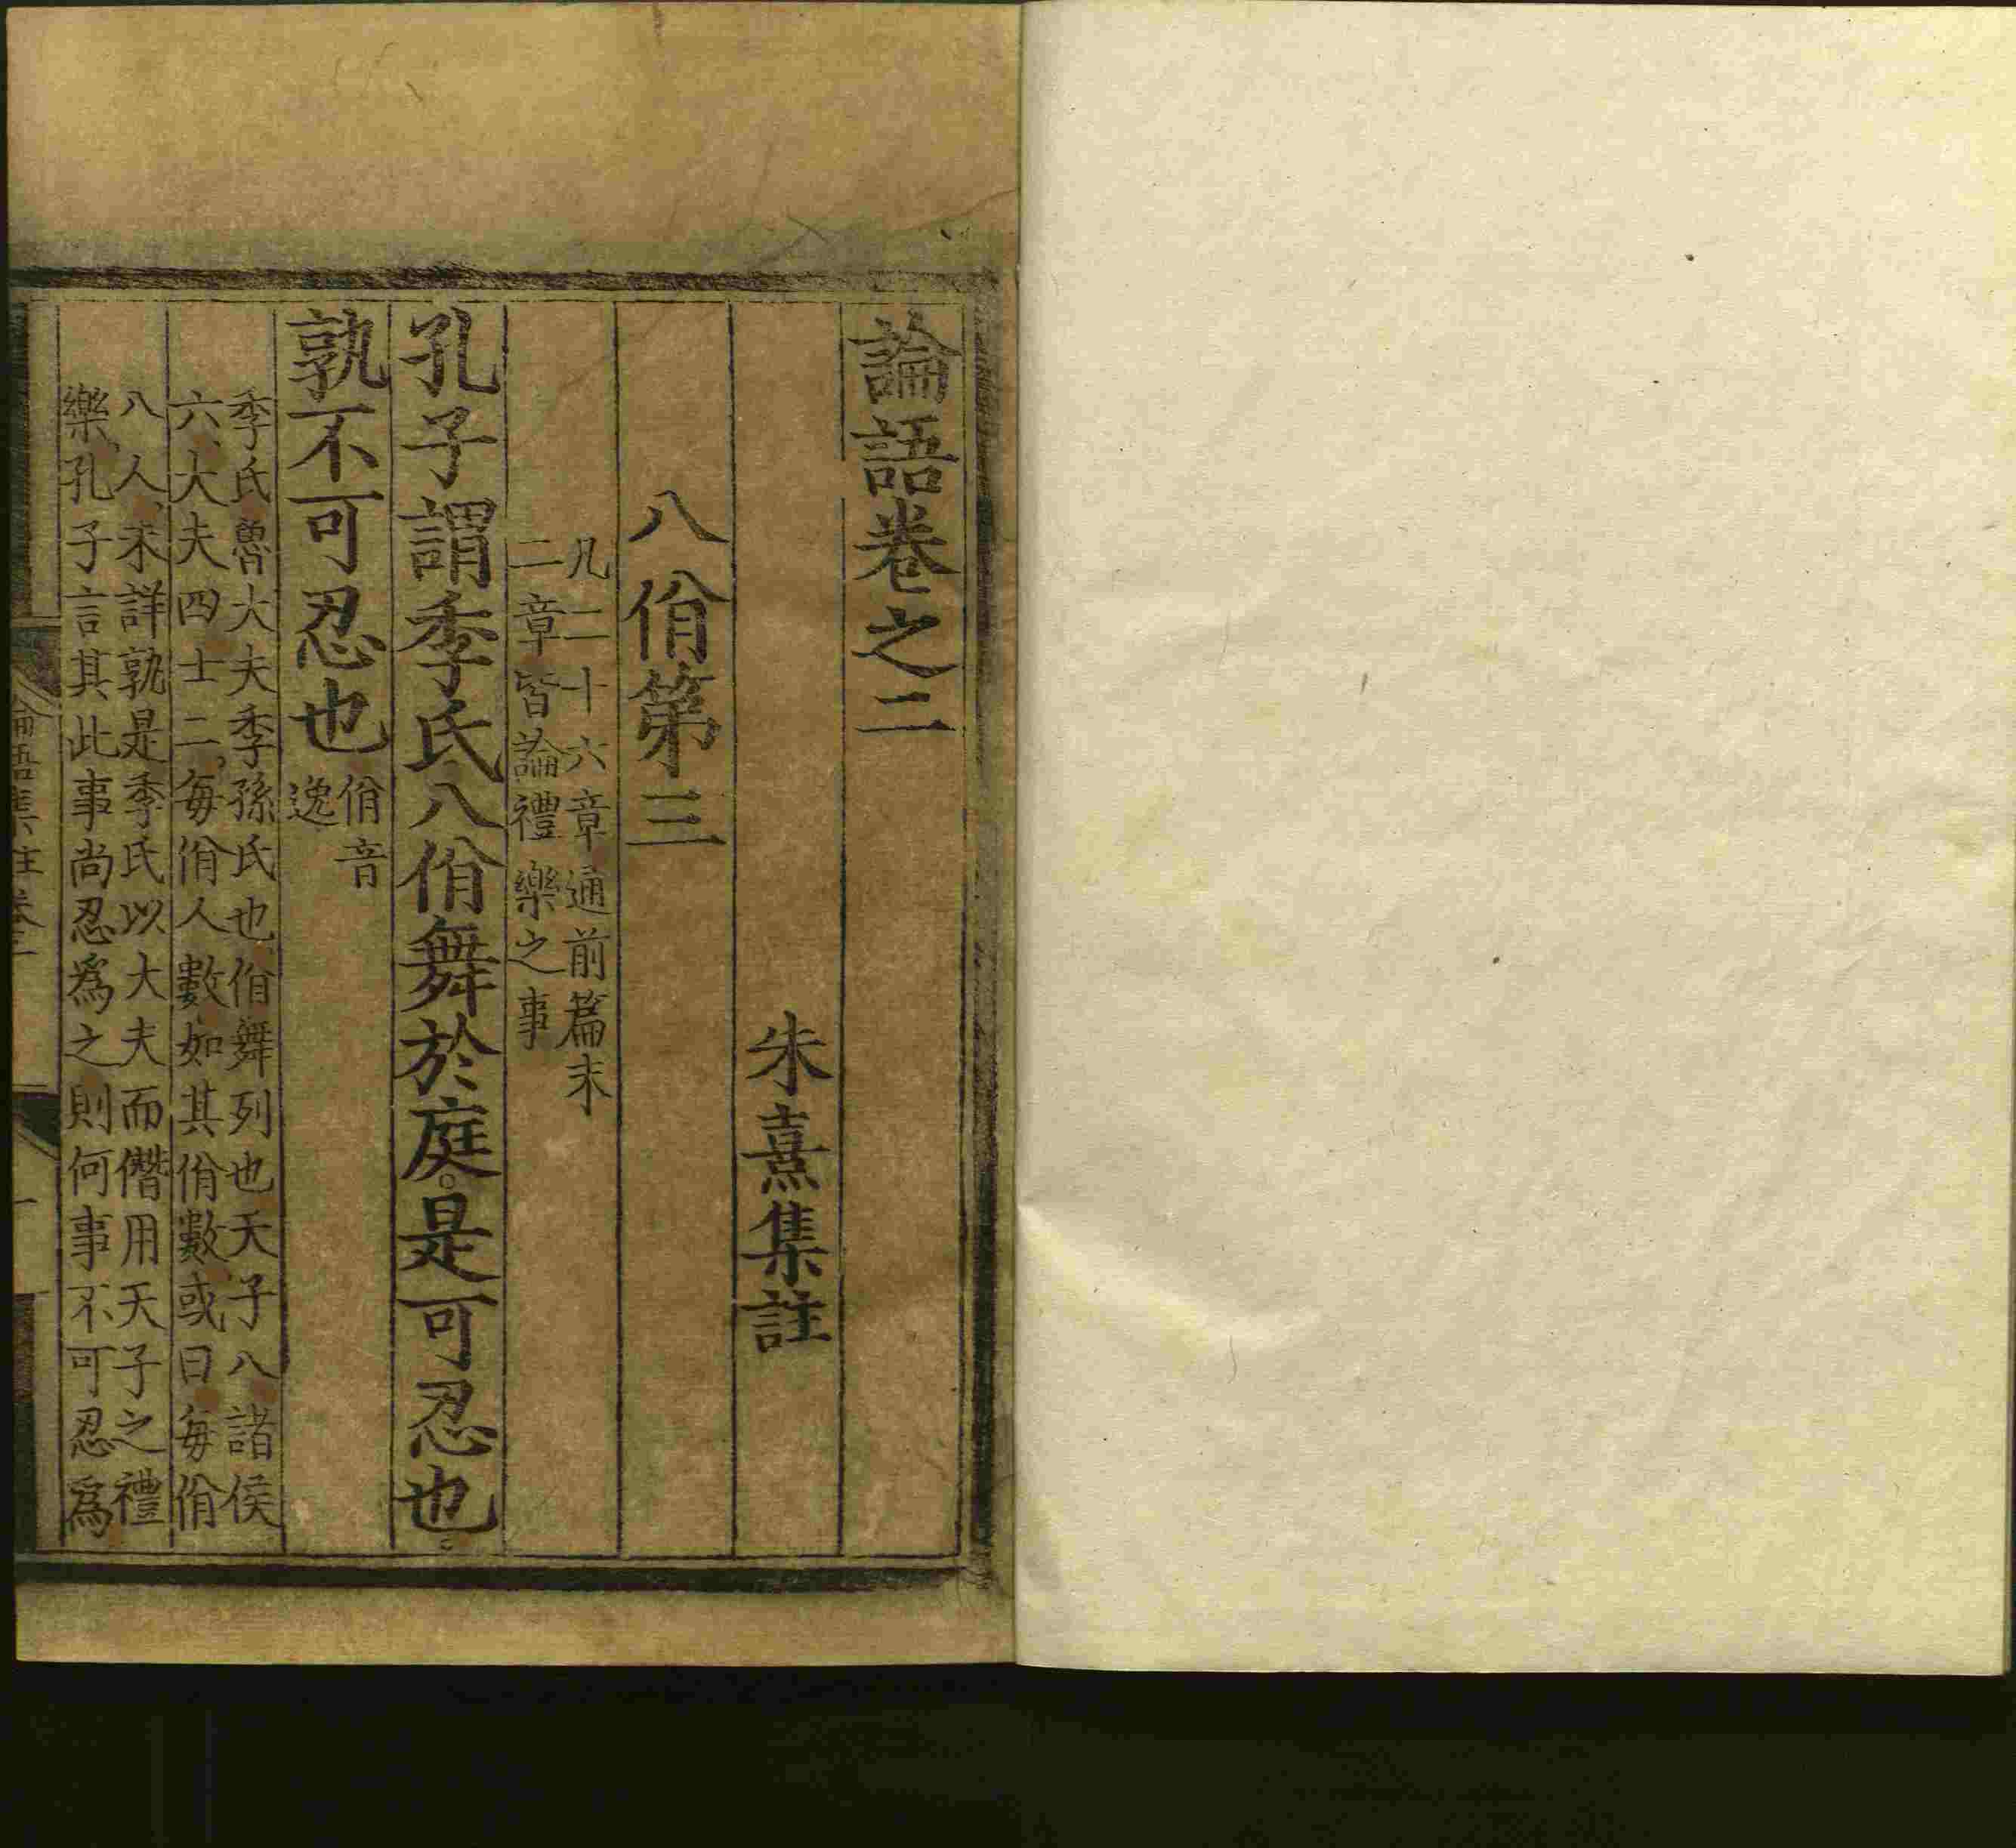 論語卷之二
朱熹集註
八佾第三
凡二十六章通前篇末
二章皆論禮樂之事
孔子謂季氏八佾舞於庭。是可忍也。
孰不可忍也
佾音
逸
季氏魯大夫季孫氏也佾舞列也天子八諸侯
六、大夫四士二、每佾人數如其佾數或曰每佾
八人、未詳孰是季氏以大夫而僭用天子之禮
樂、孔子言其此事尚忍爲之則何事不可忍爲
論語集註卷二
一